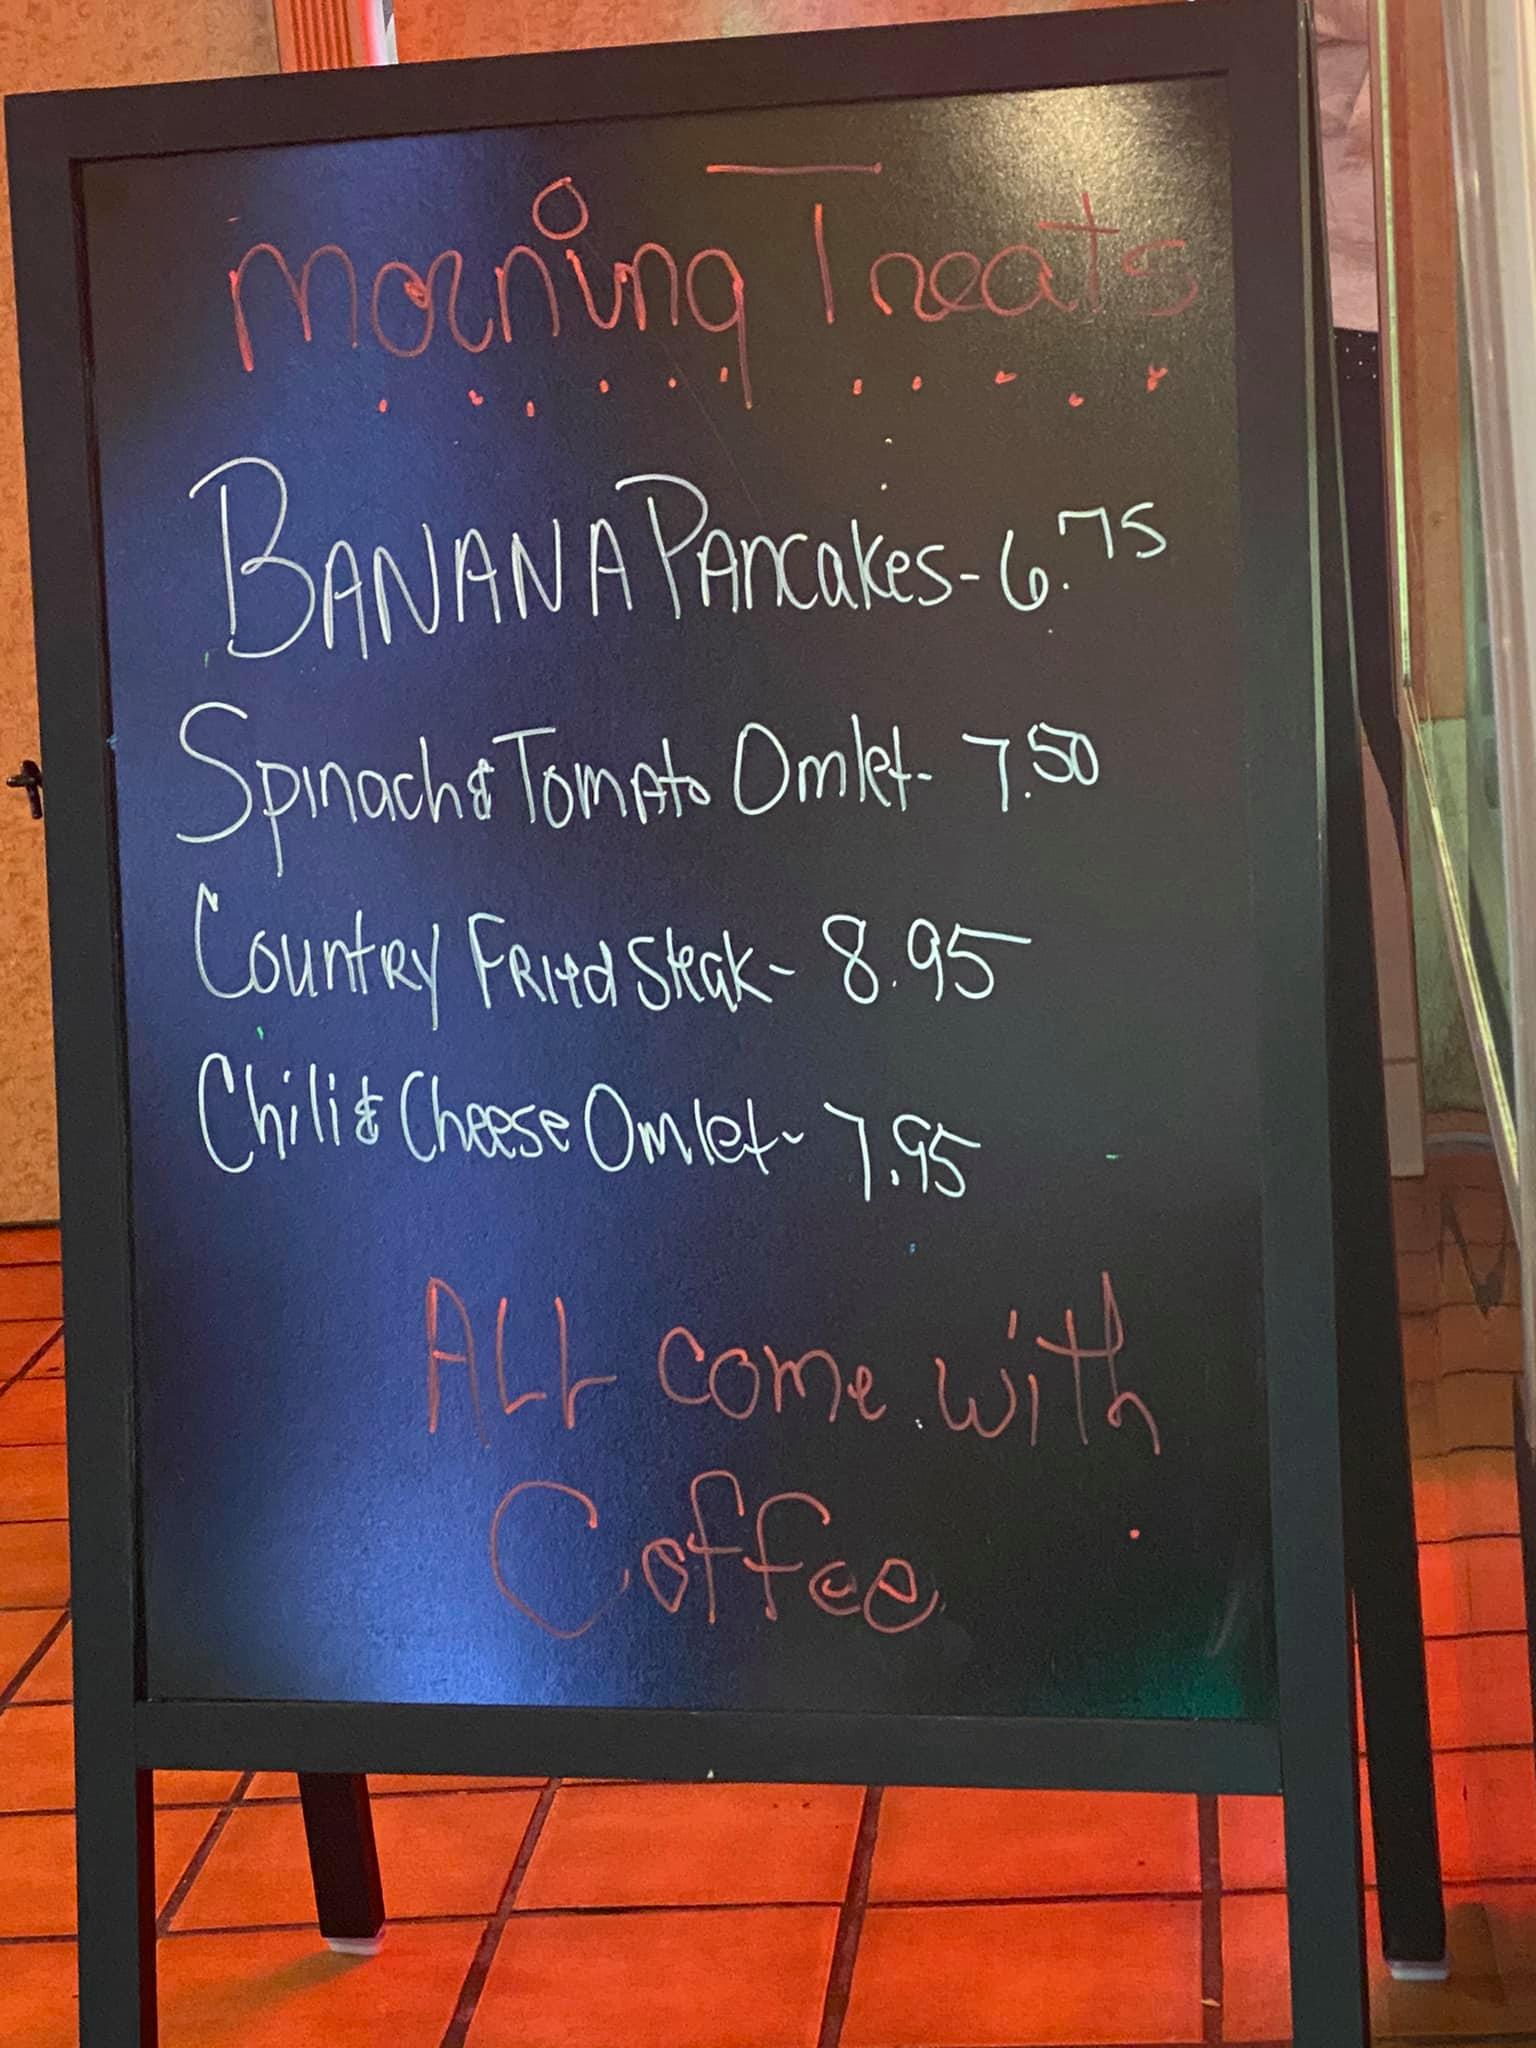 Morning Treats
BANANA PAncakes - 6.75
Spinach & Tomato Omlet - 7.50
Country Fried Steak - 8.95
Chili & Cheese Omlet - 7.95
ALL come with
Coffee